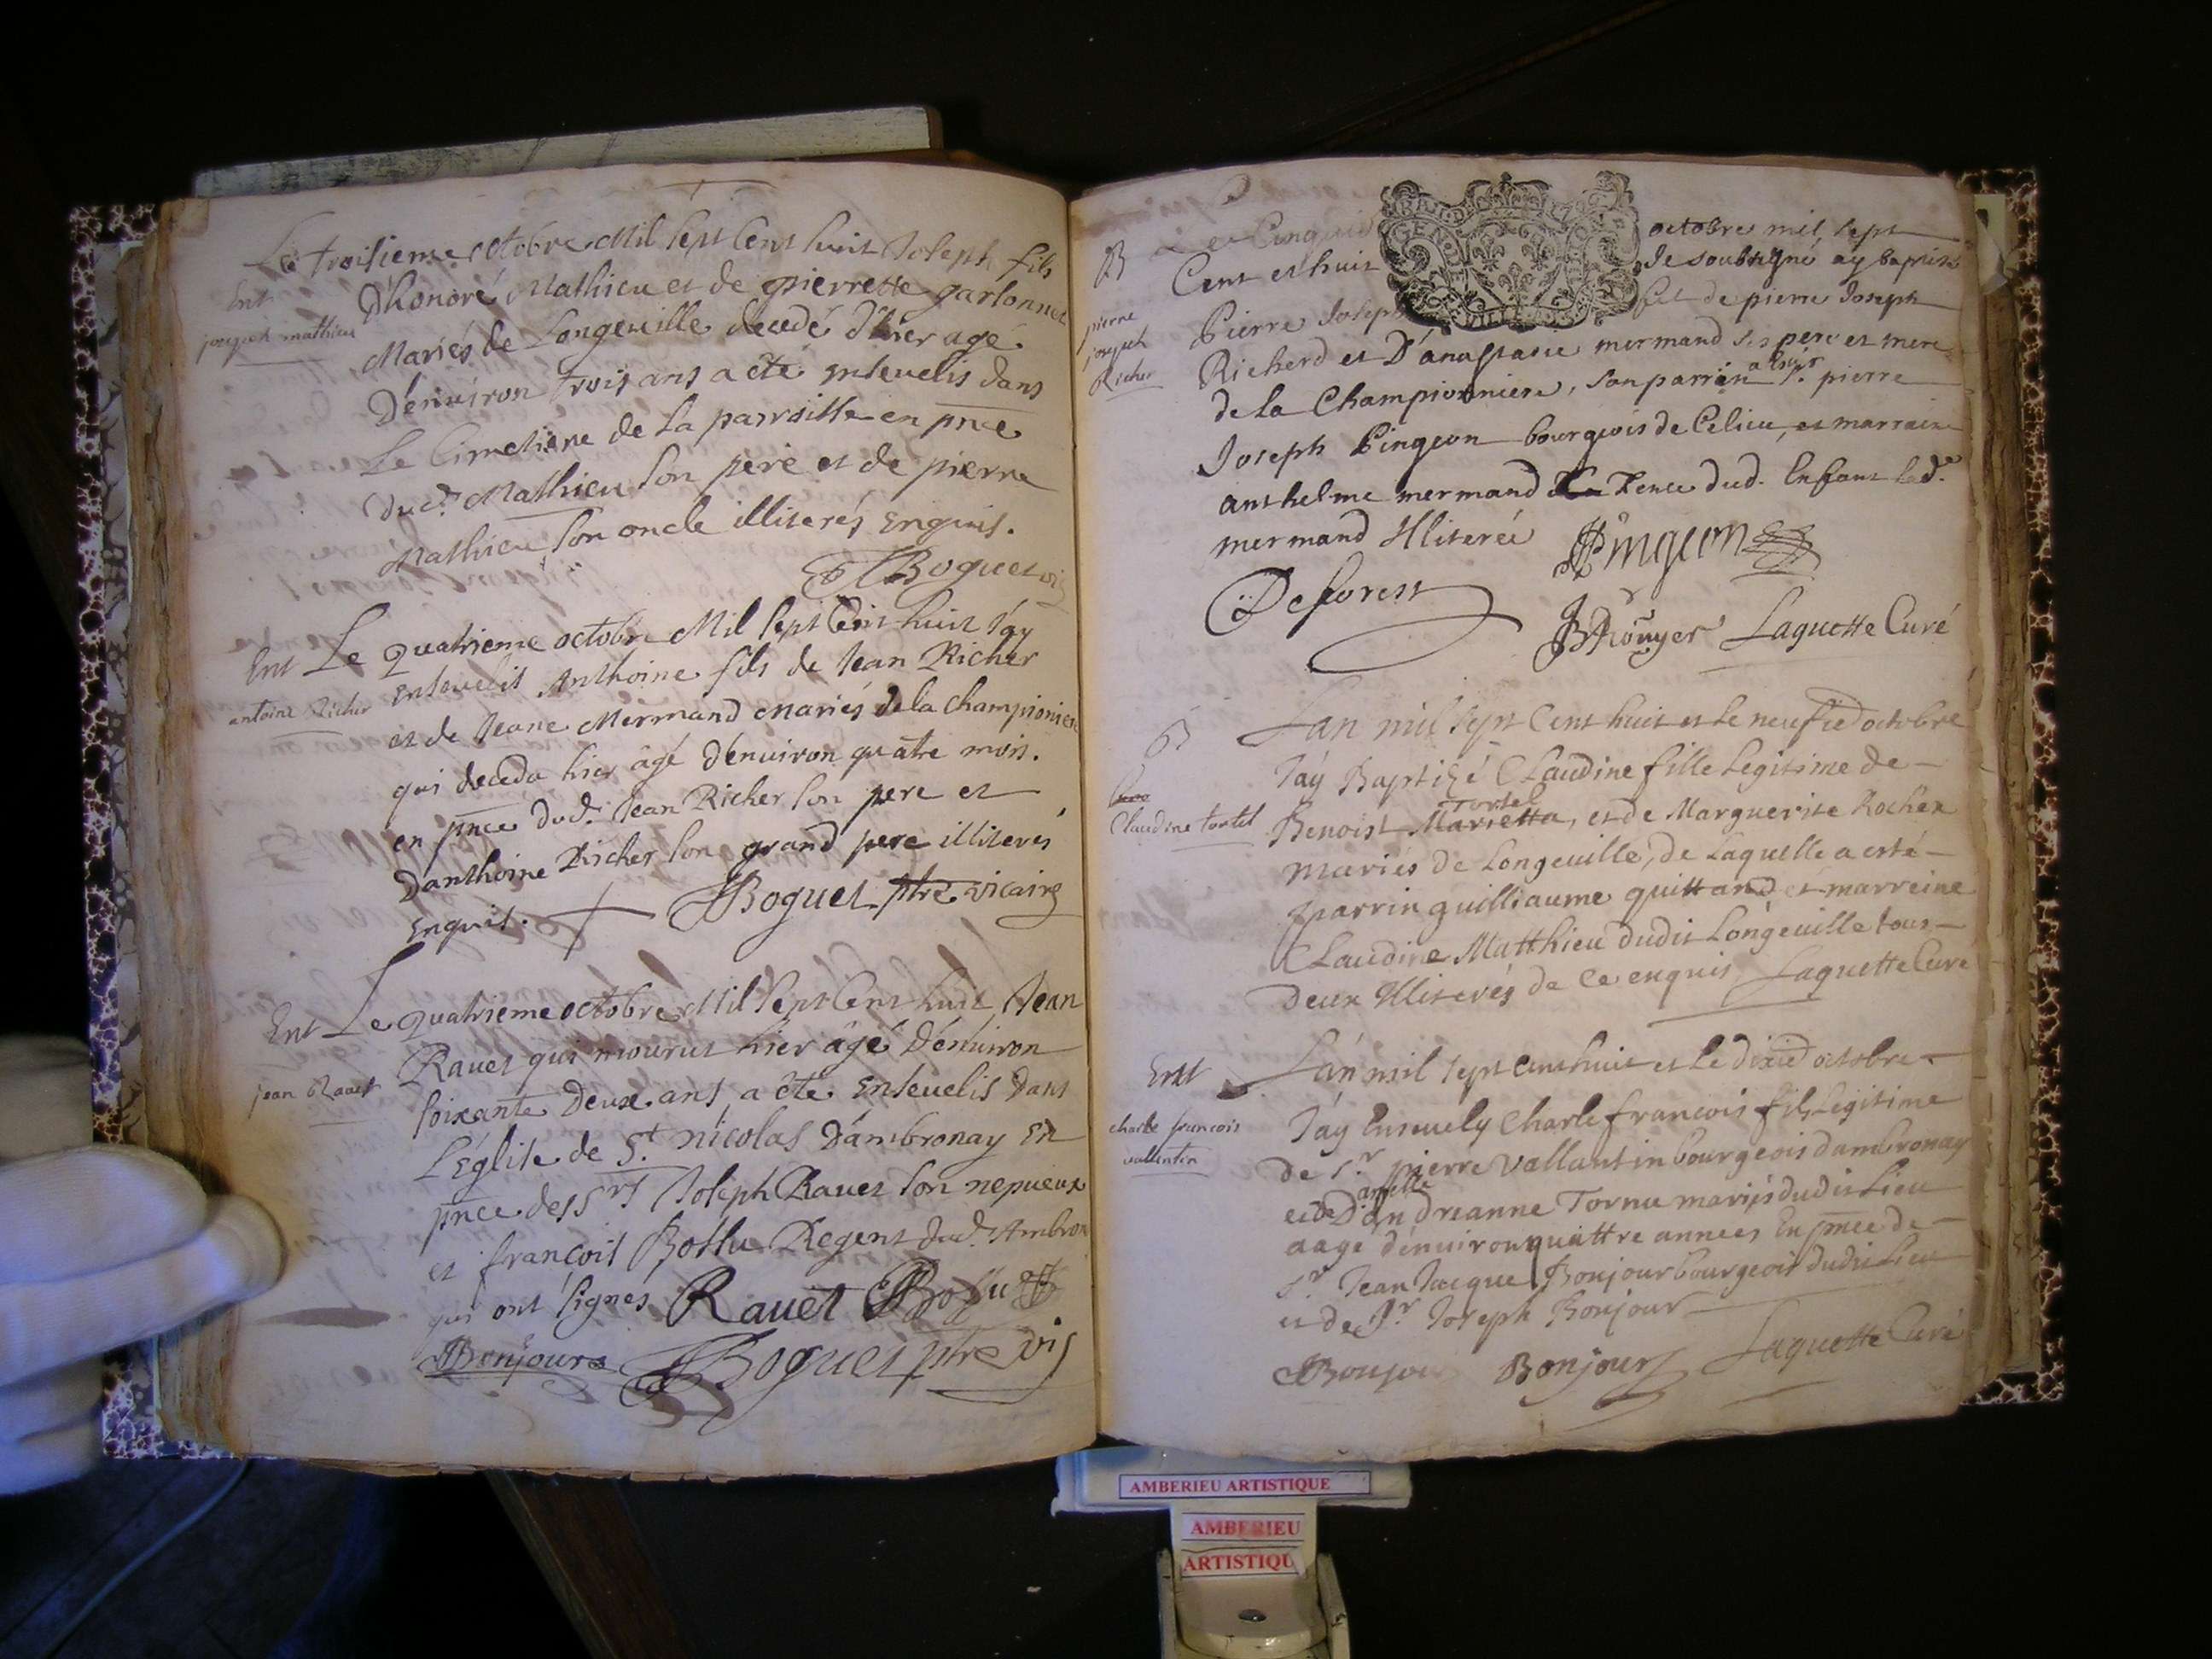 Le troisieme octobre Mil sept Cent huit Joseph fils
Ent
D'honoré Mathieu et de pierrette garlonnet
joseph mathieu
Mariés de Longeville decedé d'hier agé
D'enuiron trois ans a été enseuelis dans
Le Cimetiere de la parroisse en pnce
dud. Mathieu son pere et de pierre
Mathieu son oncle illiterés enquis.
Boguet vic
Ent
Le quatrieme octobre Mil sept Cent huit J'ay
enseuelit Anthoine fils de Jean Richer
antoine Richer
et de Jeane Mermand mariés de la Championiere
qui deceda hier âgé d'enuiron quatre mois.
en pnce dud. Jean Richer son pere et
Danthoine Richer son grand pere illiterés
enquis. Boguet ptre vicaire
Ent
Le quatrieme octobre Mil sept Cent huit Jean
Rauet qui mourut hier âgé D'enuiron
jean Rauet
soixante Deux ans a été enseuelis dans
L'église de St. nicolas D'ambronay en
pnce des Srs Joseph Rauet son nepueux
et francois Bottu Regent dud. Ambron
qui ont signés Rauet Bottu
Bonjour Boguet ptre vis
B
Le Cinquie octobre mil sept
Cent et huit Je soubsigné ay baptisé
pierre
joseph
Richer
Pierre Joseph fils de pierre Joseph
Richerd et D'anastasie mermand ses pere et mere
de la Championniere, son parrin a esté Sr. pierre
Joseph Pingeon bourgeois de Celieu, et marraine
anthelme mermand Tente dud. Enfant lad.e
mermand Illiterée Pingeon
Deforest
Rouyer Laguette Curé
B
Lan mil sept Cent huit et le neufie d'octobre
J'ay Baptizé Claudine fille Legitime de
Claudine tortel
Tortel
Benoist Marietta, et de Marguerite Rocher
mariés de Longeuille, de Laquelle a esté
parrin guilliaume quittand et marreine
Claudine Matthieu dudit Longeuille tous
deux Illiterés de ce enquis Laguette Curé
Ent
Lan mil sept cent huit et le dixie d'octobre
J'ay Enseuely Charle francois fils Legitime
charle francois
vallentin
de Sr. pierre Vallantin bourgeois dambronay
et de Damselle andreanne Tornu mariés dudit Lieu
aagé d'enuiron quattre annees En pnce de
Sr. Jean Jacque Bonjour bourgeois dudit Lieu
et de Sr. Joseph Bonjour
Bonjour Bonjour Laguette Curé
AMBERIEU ARTISTIQUE
AMBERIEU
ARTISTIQU